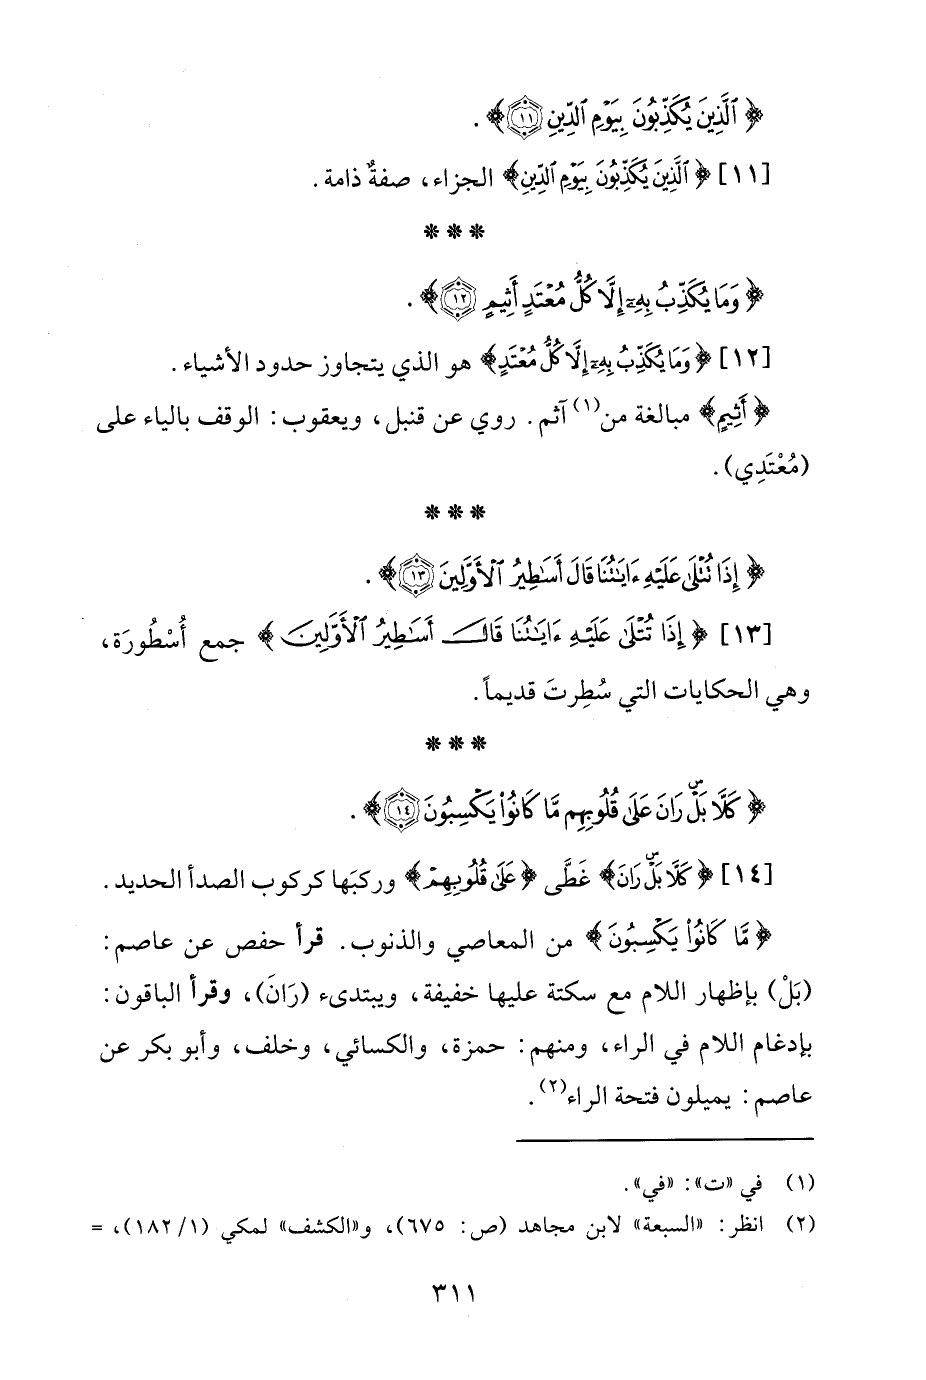 ﴿ ٱلَّذِينَ يُكَذِّبُونَ بِيَوْمِ ٱلدِّينِ ١١ ﴾ .
[١١] ﴿ ٱلَّذِينَ يُكَذِّبُونَ بِيَوْمِ ٱلدِّينِ﴾ الجزاء، صفةٌ ذامة .
* * *
﴿ وَمَا يُكَذِّبُ بِهِۦٓ إِلَّا كُلُّ مُعْتَدٍ أَثِيمٍ ١٢ ﴾ .
[١٢] ﴿ وَمَا يُكَذِّبُ بِهِۦٓ إِلَّا كُلُّ مُعْتَدٍ﴾ هو الذي يتجاوز حدود الأشياء .
﴿ أَثِيمٍ﴾ مبالغة من(١) آثم . روي عن قنبل، ويعقوب : الوقف بالياء على
(مُعْتَدِي) .
* * *
﴿ إِذَا تُتْلَىٰ عَلَيْهِ ءَايَٰتُنَا قَالَ أَسَٰطِيرُ ٱلْأَوَّلِينَ ١٣ ﴾ .
[١٣] ﴿ إِذَا تُتْلَىٰ عَلَيْهِ ءَايَٰتُنَا قَالَ أَسَٰطِيرُ ٱلْأَوَّلِينَ ﴾ جمع أُسْطُورَة،
وهي الحكايات التي سُطِرتَ قديماً .
* * *
﴿ كَلَّا بَلْۜ رَانَ عَلَىٰ قُلُوبِهِم مَّا كَانُوا۟ يَكْسِبُونَ ١٤ ﴾ .
[١٤] ﴿ كَلَّا بَلْۜ رَانَ﴾ غَطَّى ﴿ عَلَىٰ قُلُوبِهِمْ﴾ وركبَها كركوب الصدأ الحديد .
﴿ مَّا كَانُوا۟ يَكْسِبُونَ ﴾ من المعاصي والذنوب . قرأ حفص عن عاصم :
(بَلْ) بإظهار اللام مع سكتة عليها خفيفة، ويبتدىء (رَانَ)، وقرأ الباقون :
بإدغام اللام في الراء، ومنهم : حمزة، والكسائي، وخلف، وأبو بكر عن
عاصم : يميلون فتحة الراء(٢) .
(١) في «ت» : «في» .
(٢) انظر : «السبعة» لابن مجاهد (ص : ٦٧٥)، و«الكشف» لمكي (١/ ١٨٢)، =
٣١١